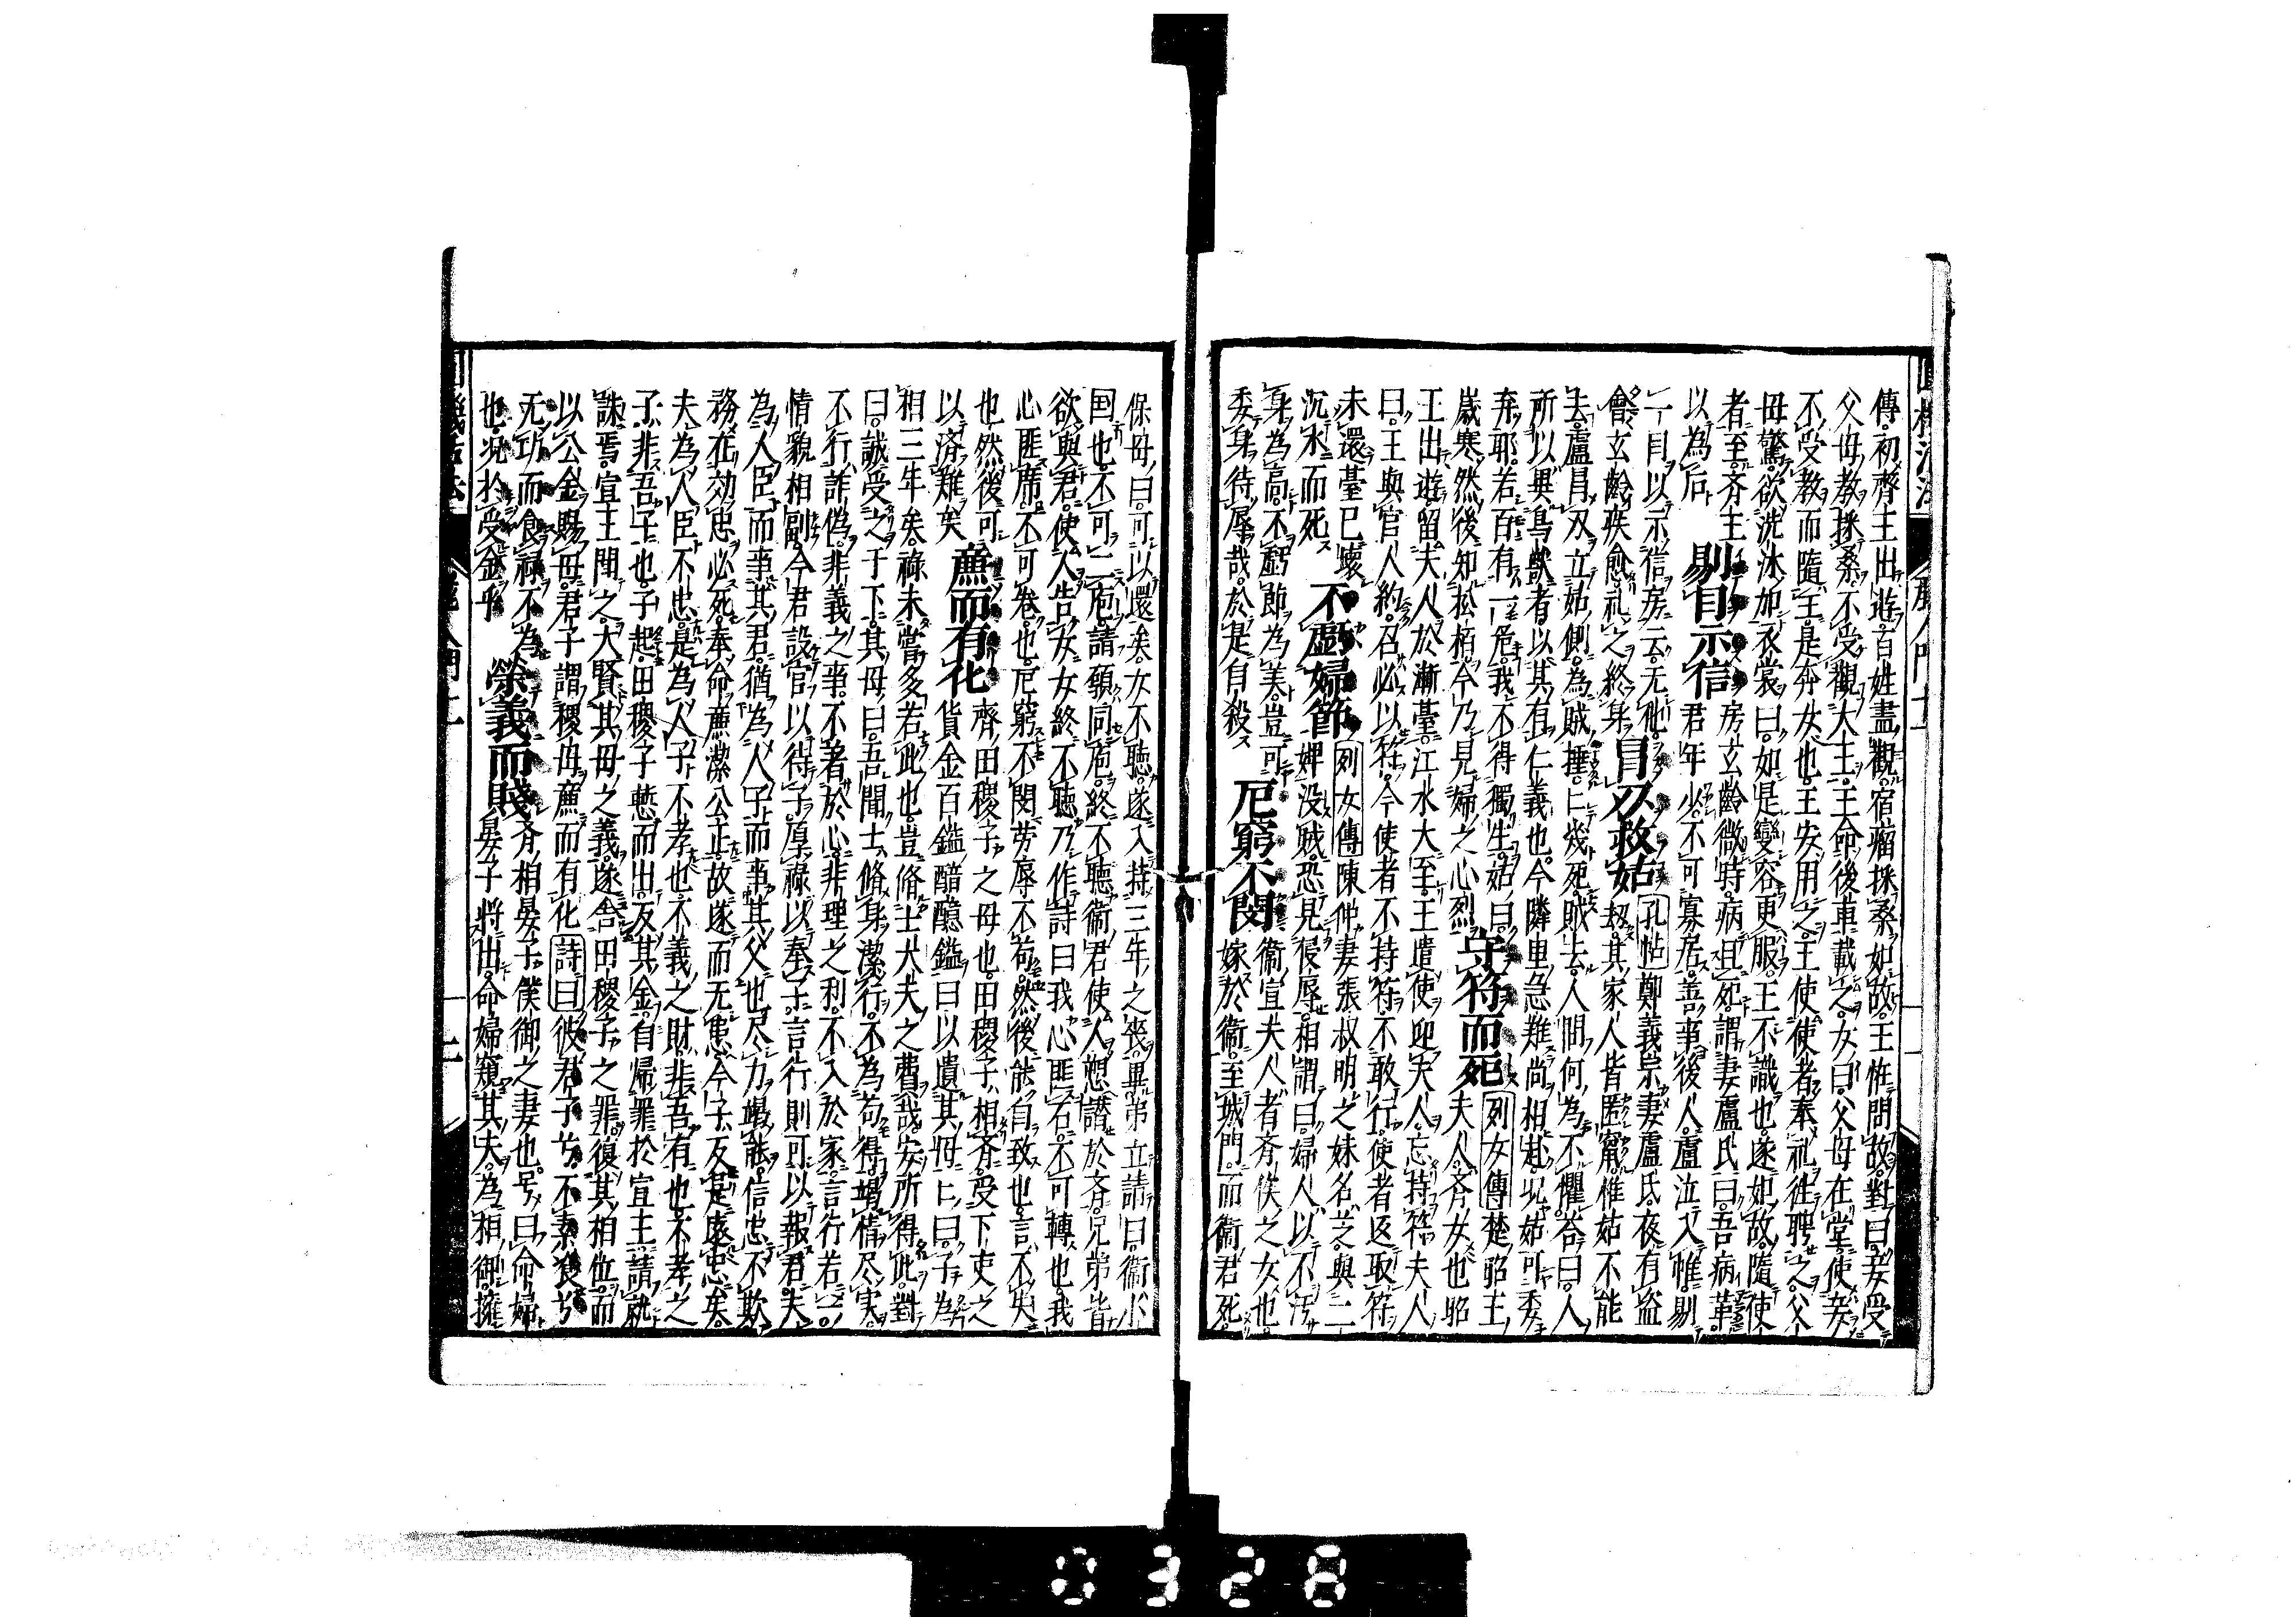 傳初齊王出遊百姓盡觀宿瘤採桑如故王恠問故對曰妾受
父母教採桑不受觀大王王命後車載之女曰父母在堂使妾
不受教而隨王是奔女也王安用之王使使者奉礼往聘之父
母驚欲洗沐加衣裳曰如是變容更服王不識也遂如故隨使
者至齐王以為后 剔目示信 房玄齡微時病且死謂妻盧氏曰吾病革
君年少不可寡居善事後人盧泣入帷剔
一目以示信房云无他
會玄齡疾愈礼之終身 冒刃救姑 孔帖鄭義宗妻盧氏夜有盗
刼其家人皆匿竄惟姑不能
去盧冒刃立姑側為賊捶亡幾死賊去人問何為不懼荅曰人
所以異鳥獸者以其有仁義也今隣里急難尚相赴况姑可委
弃耶若百有一危我不得獨生姑曰
歲寒然後知松栢今乃見婦之心烈 守符而死 列女傳楚昭王
夫人齐女也昭
王出遊留夫人於漸臺江水大至王遣使迎夫人忘持符夫人
曰王與官人約召必以符今使者不持符不敢行使者返取符
未還臺已壞
沉水而死 不虧婦節 列女傳陳仲妻張叔明之妹名芝與二
婢没賊恐見侵辱相謂曰婦人以不汚
身為高不虧節為美豈可
委身待辱哉於是自殺 厄窮不閔 衞宣夫人者齐侯之女也
嫁於衞至城門而衞君死
保母曰可以還矣女不聽遂入持三年之喪畢弟立請曰衞小
国也不可二庖請願同庖終不聽衞君使人愬諸於齐兄弟皆
欲與君使人告女女終不聽乃作詩曰我心匪石不可轉也我
心匪席不可卷也厄窮不閔劳辱不苟然後能自致也言不失
也然後可
以済難矣 廉而有化 齊田稷子之母也田稷子相齐受下吏之
貨金百鎰醋醯鎰曰以遺其母亡曰子為
相三年矣祿未甞多若此也豈脩士大夫之費哉安所得此對
曰誠受之于下其母曰吾聞士脩身潔行不為苟得竭情尽实
不行詐偽非義之事不著於心非理之利不入於家言行若一
情貌相副今君設官以待子厚祿以奉子言行則可以報君夫
為人臣而事其君猶為人子而事其父也尽力竭能信忠不欺
務在効忠必死奉命廉潔公正故遂而无患今子反是遠忠矣
夫為人臣不忠是為人子不孝也不義之財非吾有也不孝之
子非吾子也子起田稷子慙而出反其金自帰罪於宣王請就
誅焉宣王聞之大賢其母之義遂舎田稷子之罪復其相位而
以公金賜母君子謂稷母廉而有化 詩曰 彼君子兮不素飡兮
无功而食禄不為
也况於受金乎 榮義而賤 齐相晏子僕御之妻也号曰命婦
晏子將出命婦窺其夫為相御擁
0328